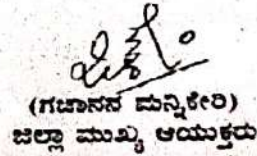 (ಗಜಾನನ ಮನ್ನಿಕೇರಿ)
ಜಿಲ್ಲಾ ಮುಖ್ಯ ಆಯುಕ್ತರು